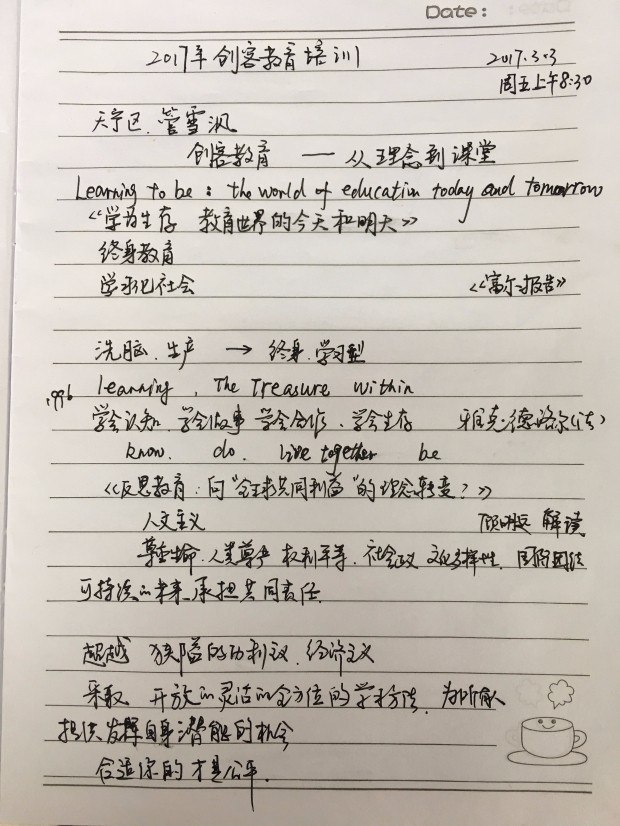 Date:
2017年创客教育培训 2017.3.3
周五上午8:30
天宁区.管雪沨
创客教育 —— 从理念到课堂
Learning to be: the world of education today and tomorrow
《学会生存 教育世界的今天和明天》
终身教育
学习化社会 《富尔报告》
洗脑.生产 → 终身.学习型
1996 learning, The Treasure within
学会认知.学会做事 学会合作.学会生存 雅克·德洛尔(法)
know. do. live together be
《反思教育:向"全球共同利益"的理念转变?》
人文主义 顾明远 解读
尊重生命.人类尊严 权利平等.社会正义 文化多样性.国际团结
可持续的未来承担共同责任.
超越 狭隘的功利主义.经济主义
采取 开放的灵活的全方位的学习方法.为所有人
提供发挥自身潜能的机会
合适你的才是公平.